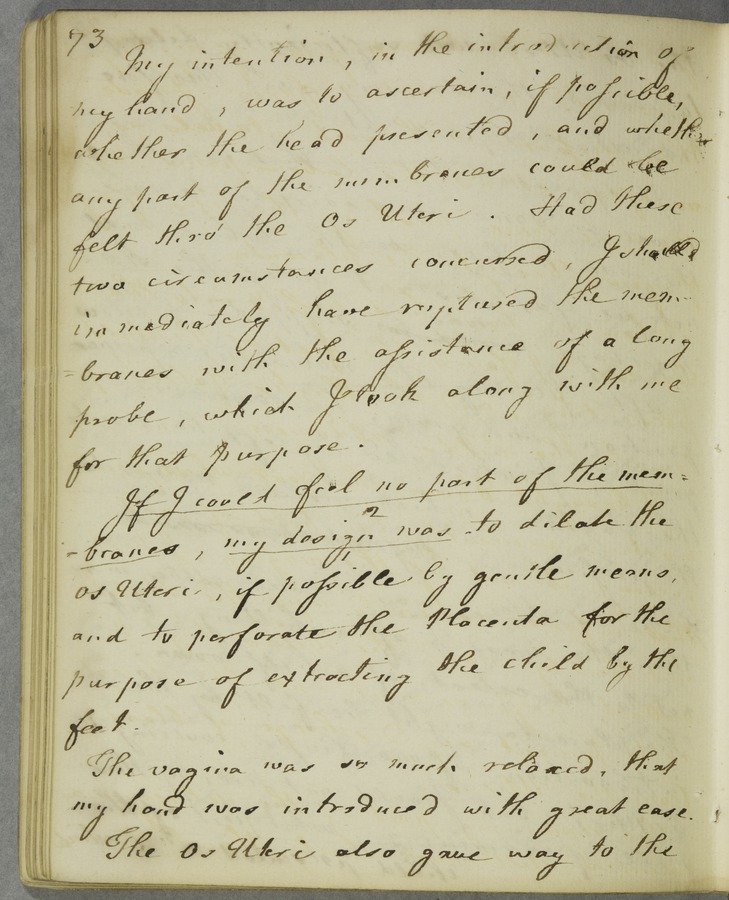 73
My intention, in the introduction of
my hand, was to ascertain, if possible,
whether the head presented, and whether
any part of the membranes could be
felt thro' the Os Uteri. Had these
two circumstances concurred, I should
immediately have ruptured the mem-
=branes with the assistance of a long
probe, which I took along with me
for that purpose.
If I could feel no part of the mem=
-branes, my design was to dilate the
os Uteri, if possible by gentle means,
and to perforate the Placenta for the
purpose of extracting the child by the
feet.
The vagina was so much relaxed, that
my hand was introduced with great ease.
The Os Uteri also gave way to the